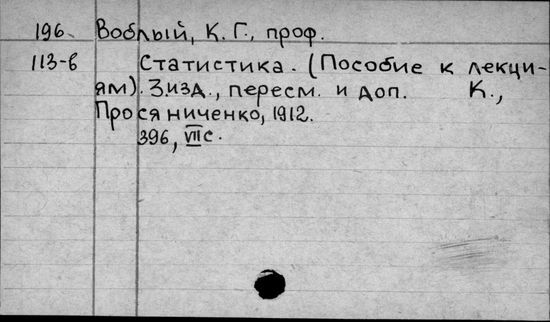 196. Воблый, К. Г., проф.
113-в Статистика. (Пособие к лекци-
ям). 3изд., пересм. и доп. К.,
Просяниченко, 1912.
396, VIIс.